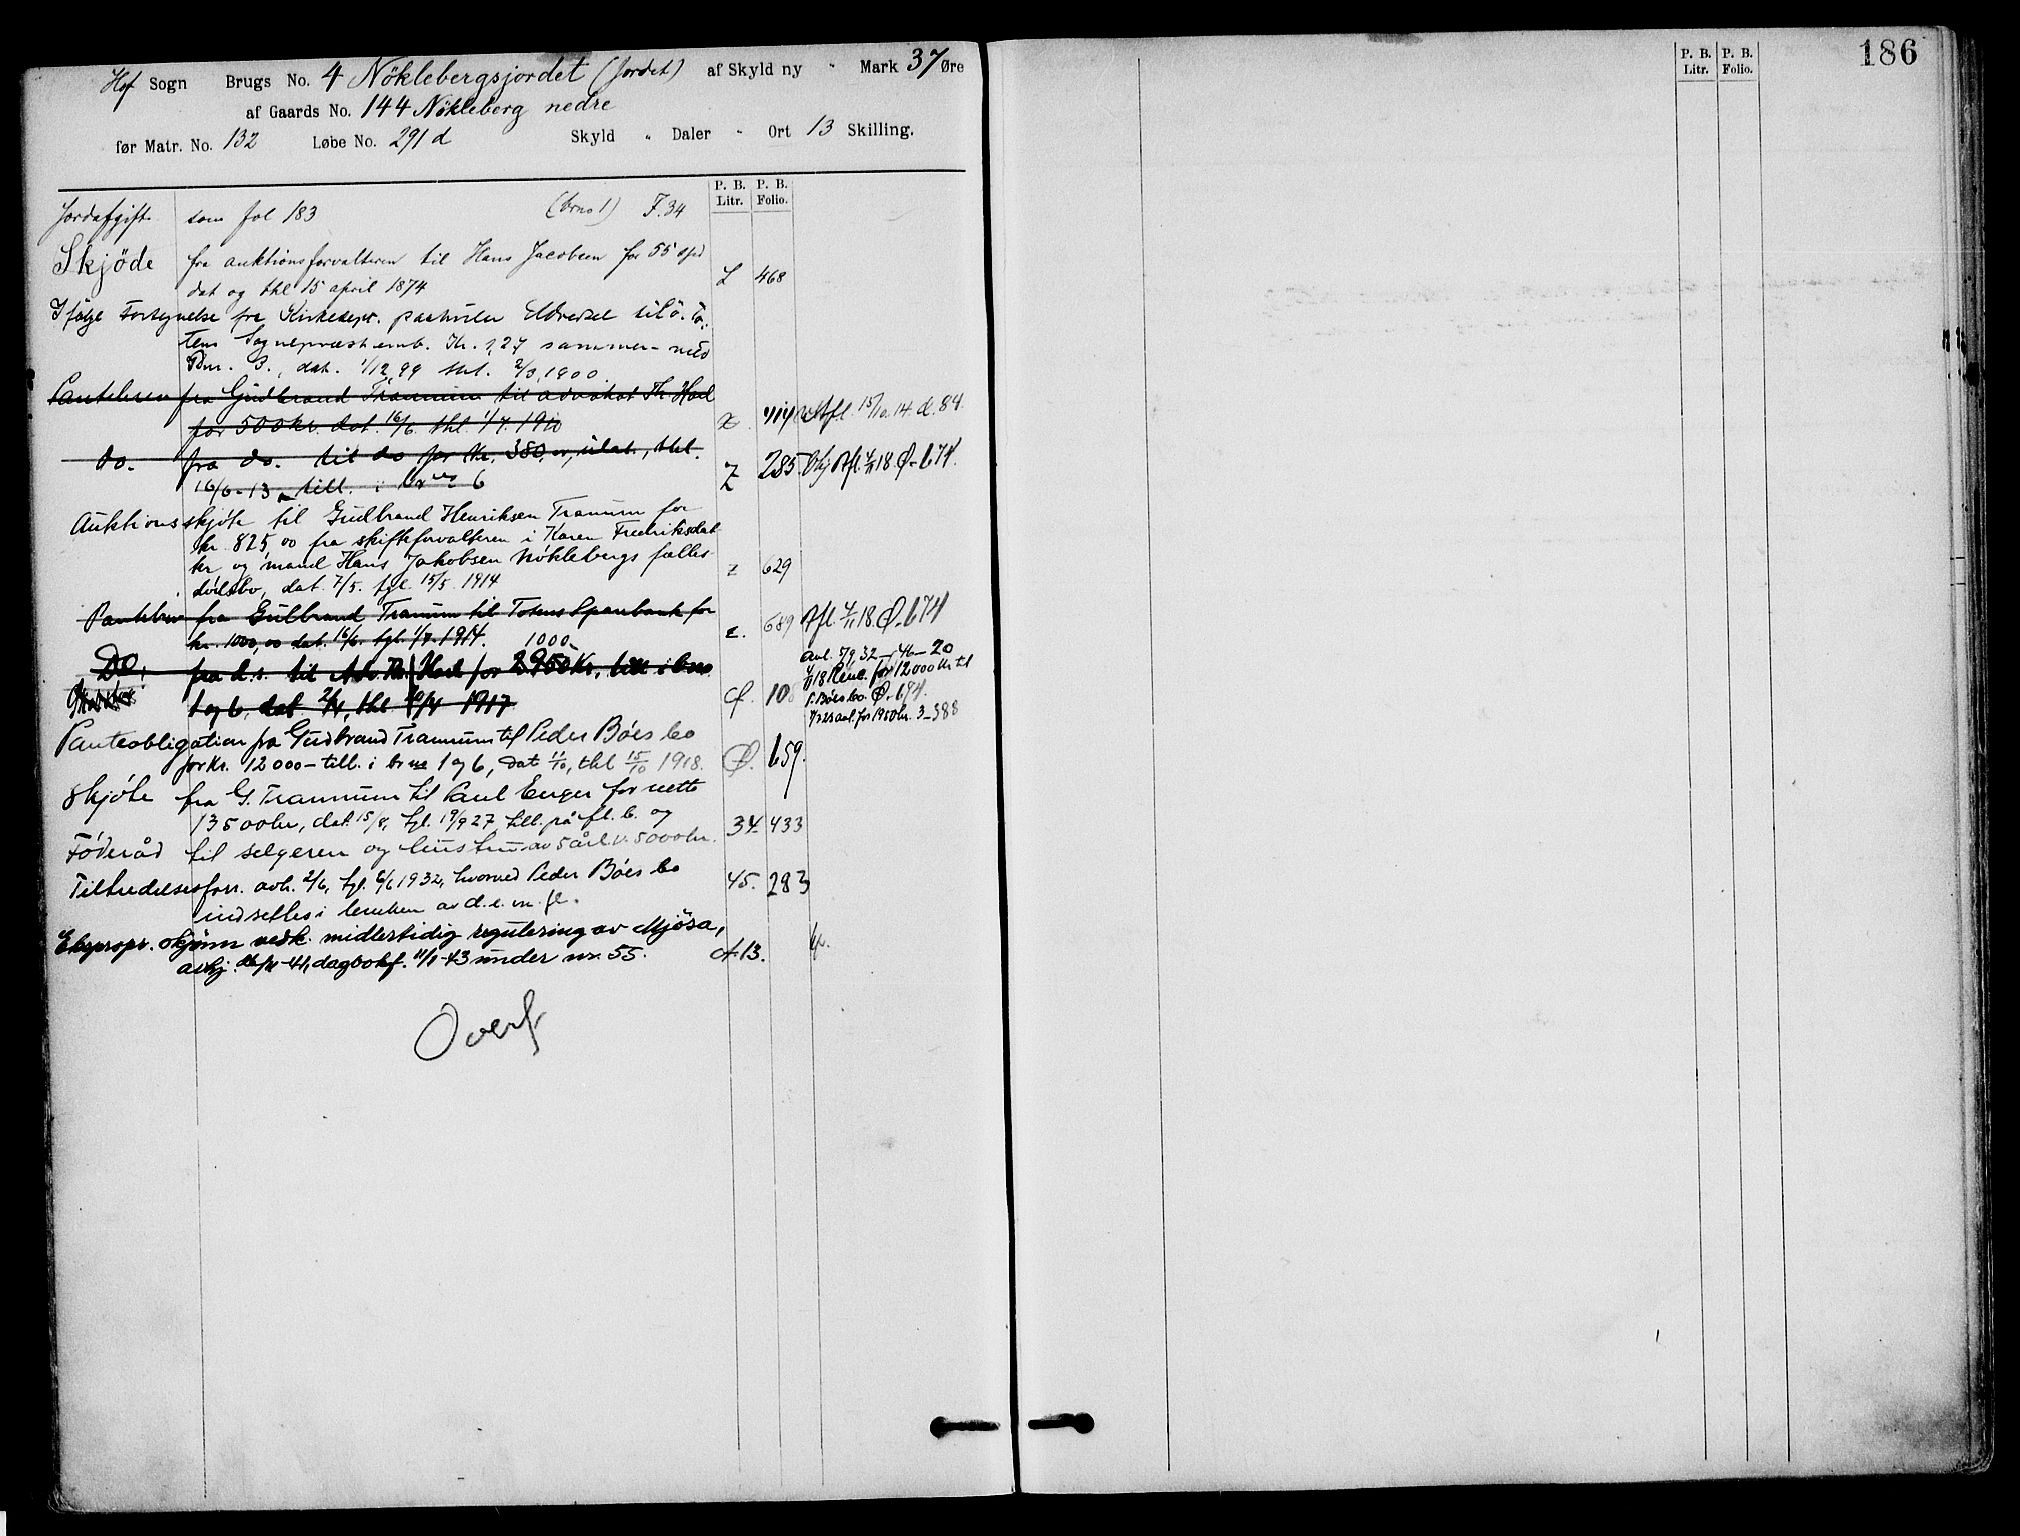 Hof Sogn Brugs No. 4 Nöklebergsjordet (Jordet) af Skyld ny " Mark 37 Øre
af Gaards No. 144 Nökleberg nedre
før Matr. No. 132 Løbe No. 291 d Skyld " Daler " Ort 13 Skilling.
P. B. Litr. P. B. Folio.
Jordafgift som fol 183 (brno 1) F. 34
Skjöde fra auktionsforvalteren til Hans Jacobsen for 55 spd
dat og thl 15 april 1874 L 468
Ifølge Fortegnelse fra Kirkedept. paahviler til Ö. To-
tens Sogneprestemb. Kr. 1,27 sammen med
Bnr. 3., dat. 1/12.99 thl. 1900.
Pantebrev fra Gudbrand Tranum til advokat Th. Hoel
for 500 kr. dat. 16/6. thl 1/7. 1910
Do. fra do. til do for Kr. 380, thl.
16/6-13 till. i br no 6 Z 285. Afl. 4/11 18. Ø-674.
Auktionsskjöte til Gudbrand Henriksen Tranum for
kr. 825,00 fra skifteforvalteren i Karen Fredriksdat
kr og mand Hans Jakobsen Nöklebergs fælles
dödsbo, dat. 7/5. tgl. 15/5. 1914 z 629
Pantebrev fra Gulbrand Tranum til Totens Sparebank for
kr. 1000,00 dat. 16/6. tgl. 1/7. 1914. z. 689 Afl. 4/11 18. Ø-674
1000.-
Do: fra d.s. til Adv. Th. Hoel for 2950 Kr, till i brno
1 og 6, dat 2/4, thl 1917 108
avl. 7/9 32 - 46 - 20
for 12000 kr til
P. Böes bo. Ø-694.
avl. for 1950 kr. 3-388
Panteobligation fra Gudbrand Tranum til Peder Böes bo
for kr. 12000 - till. i br no 1 og 6, dat 11/10, thl 15/10 1918. Ø. 659.
Skjöte fra G. Tranum til Paul Enger for nette
13500 kr, dat. 15/8, tgl. 19/9 27 till. på fl. b. og 34. 433
Föderåd til selgeren og hustru av 5 årl. v. 5000 kr.
Tiltredelseserkl. avh. 2/6, tgl. 6/6 1932, hvorved Peder Böes bo
indsettes i bruken av d.e. m. fl. 45. 283
Ekspropr. skjönn vedk. midlertidig regulering av Mjösa,
avhj. -41, dagbokf. 11/1-43 under nr. 55. A 13.
Overf.
P. B. Litr. P. B. Folio.
186